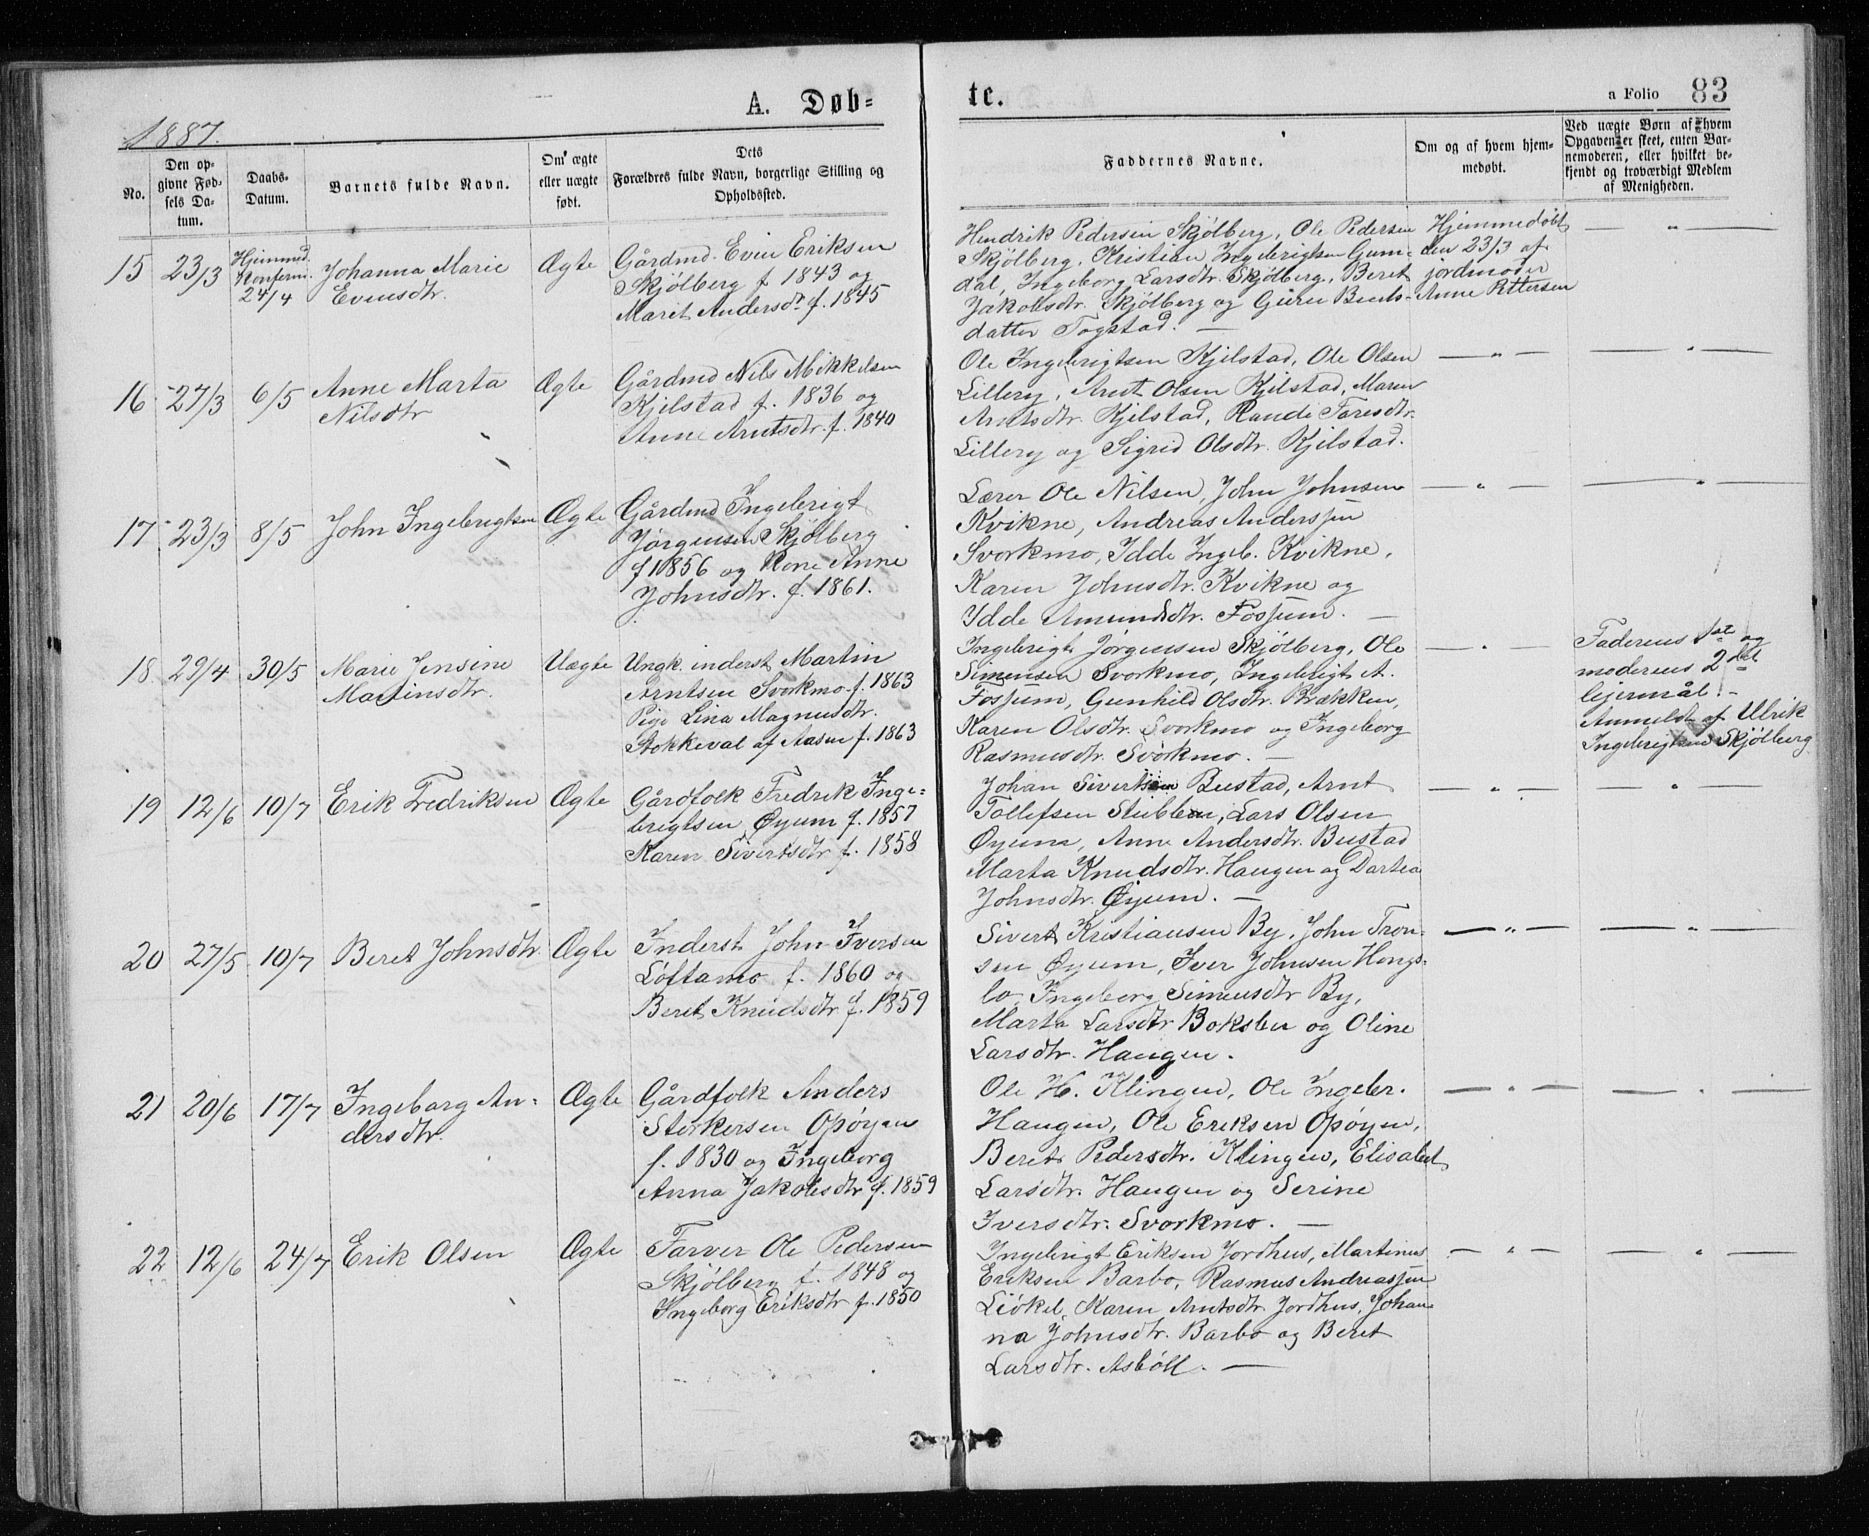 1887.
A. Døb-
te.
a Folio 83
No.
Den op-
givne Fød-
sels Da-
tum.
Daabs-
Datum.
Barnets fulde Navn.
Om ægte
eller uægte
født.
Dets
Forældres fulde Navn, borgerlige Stilling og
Opholdssted.
Faddernes Navne.
Om og af hvem hjem-
medøbt.
Ved uægte Børn af hvem
Opgaven er skeet, enten Bar-
nemoderen, eller hvilket be-
kjendt og troværdigt Medlem
af Menigheden.
15 23/3
Hjemmed.
Konferm.
24/4
Johanna Marie
Evensdtr.
Ægte
Gårdmd. Even Eriksen
Skjølberg f. 1843 og
Marit Andersdtr f. 1845
Hendrik Pedersen Skjølberg, Ole Pedersen
Skjølberg, Kristian Ingebrigtsen Gum-
dal, Ingeborg Larsdtr. Skjølberg, Beret
Jakobsdtr. Skjølberg og Guru Bents-
datter Togstad. —
Hjemmedøbt
den 23/3 af
jordmoder
Anne Pettersen
— " —
16 27/3 6/5
Anne Marta
Nilsdtr
Ægte
Gårdmd Nils Mikkelsen
Kjelstad f. 1836 og
Anne Arntsdtr. f. 1840
Ole Ingebrigtsen Kjelstad, Ole Olsen
Lillery, Arnt Olsen Kjelstad, Maren
Arntsdtr. Kjelstad, Randi Taresdtr.
Lillery og Sigrid Olsdtr. Kjelstad.
— " —
— " —
17 23/3 8/5
John Ingebrigtsen
Ægte
Gårdmd Ingebrigt
Jørgensen Skjølberg
f. 1856 og Kone Anne
Johnsdtr. f. 1861.
Lærer Ole Nilsen, John Johnsen
Kvikne, Andreas Anderssen
Svorkmo, Idde Ingeb. Kvikne,
Karen Johnsdtr. Kvikne og
Idde Amundsdtr. Fossum. —
— " —
— " —
18 29/4 30/5
Marie Jensine
Martinsdtr.
Uægte
Ungk. inderst Martin
Arntsen Svorkmo f. 1863
Pige Lina Magnusdtr.
Stokkeval af Aasen f. 1863
Ingebrigt Jørgensen Skjølberg, Ole
Simensen Svorkmo, Ingebrigt A.
Fossum, Gunhild Olsdtr. Brækken,
Karen Olsdtr. Svorkmo og Ingeborg
Rasmusdtr. Svorkmo. —
— " —
Faderens 1ste og
moderens 2det
lejermål. —
Anmeldt af Ulrik
Ingebrigtsen Skjølberg
19 12/6 10/7
Erik Fredriksen
Ægte
Gårdfolk Fredrik Inge-
brigtsen Øyum f. 1857
Karen Sivertsdtr f. 1858
Johan Sivertsen Bustad, Arnt
Tollefsen Stubben, Lars Olsen
Øyum, Anne Andersdtr. Bustad
Marta Knudsdtr. Haugen og Dartea
Johnsdtr. Øyum. —
— " —
— " —
20 27/5 10/7
Beret Johnsdtr.
Ægte
Inderst John Iversen
Loftamo f. 1860 og
Beret Knudsdtr f. 1859
Sivert Kristiansen By, John Tron-
sen Øyum, Iver Johnsen Hongs-
lo, Ingeborg Simensdtr By,
Marta Larsdtr Boksben og Oline
Larsdtr. Haugen.
— " —
— " —
21 20/6 17/7
Ingeborg An-
dersdtr.
Ægte
Gårdfolk Anders
Størkersen Opøyen
f. 1830 og Ingeborg
Anna Jakobsdtr f. 1859
Ole H. Klingen, Ole Ingebr.
Haugen, Ole Eriksen Opøyen,
Beret Pedersdtr. Klingen, Elisabet
Larsdtr. Haugen og Serine
Iversdtr. Svorkmo. —
— " —
— " —
22 12/6 24/7
Erik Olsen
Ægte
Farver Ole Pedersen
Skjølberg f. 1848 og
Ingeborg Eriksdtr f. 1850
Ingebrigt Eriksen Jordhus, Martinus
Eriksen Barbo, Rasmus Andreassen
Liøkel, Karen Arntsdtr. Jordhus, Johan-
na Johnsdtr. Barbo og Beret
Larsdtr. Asbøll. —
— " —
— " —